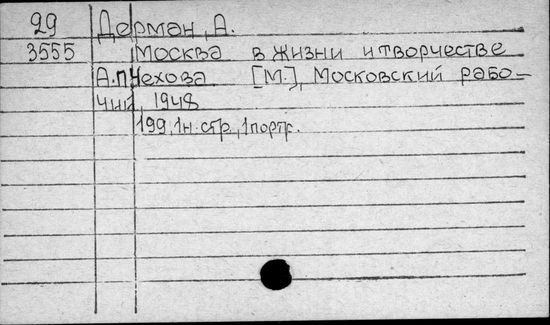 29 Дерман, А.
3555 Москва в жизни и творчестве
А.П.Чехова [М.], Московский рабо-
чий, 1948
199, 1н.стр., 1портр.